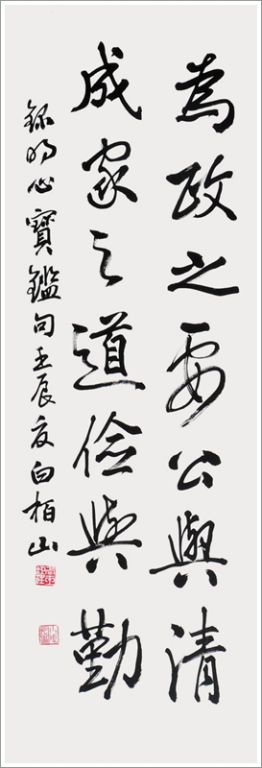 為政之要公與清
成家之道儉與勤
錄明心寶鑑句壬辰夏白栢山